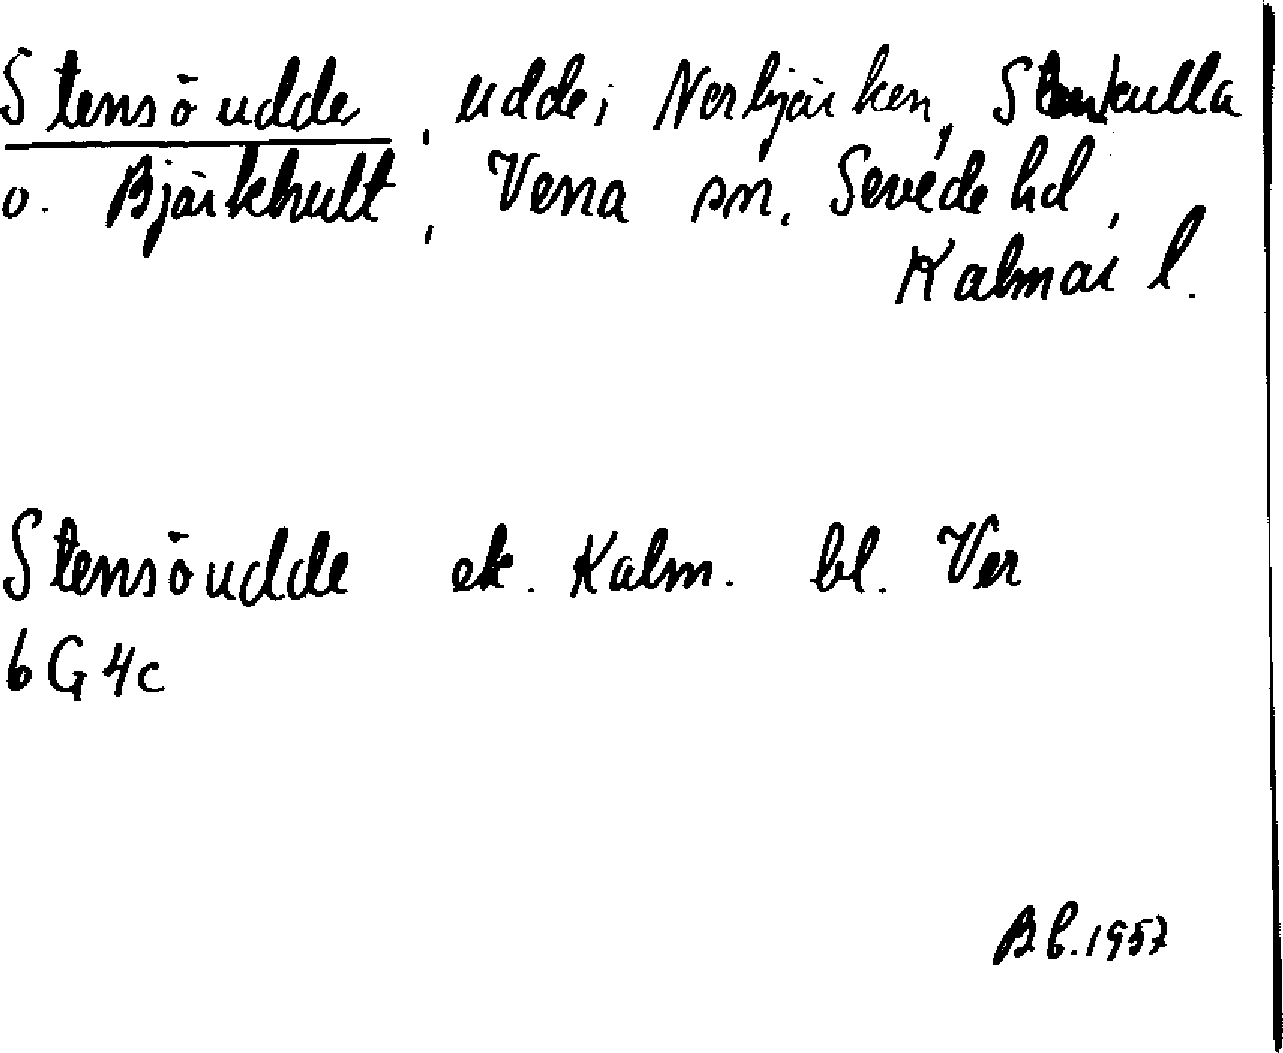 Stensöudde, udde i Norbjärken, Stenkulla
o. Bjärkhult, Vena sn, Sevede hd,
Kalmar l.
Stensöudde ek. Kalm. bl. Ver
6G4c
Bb. 1957